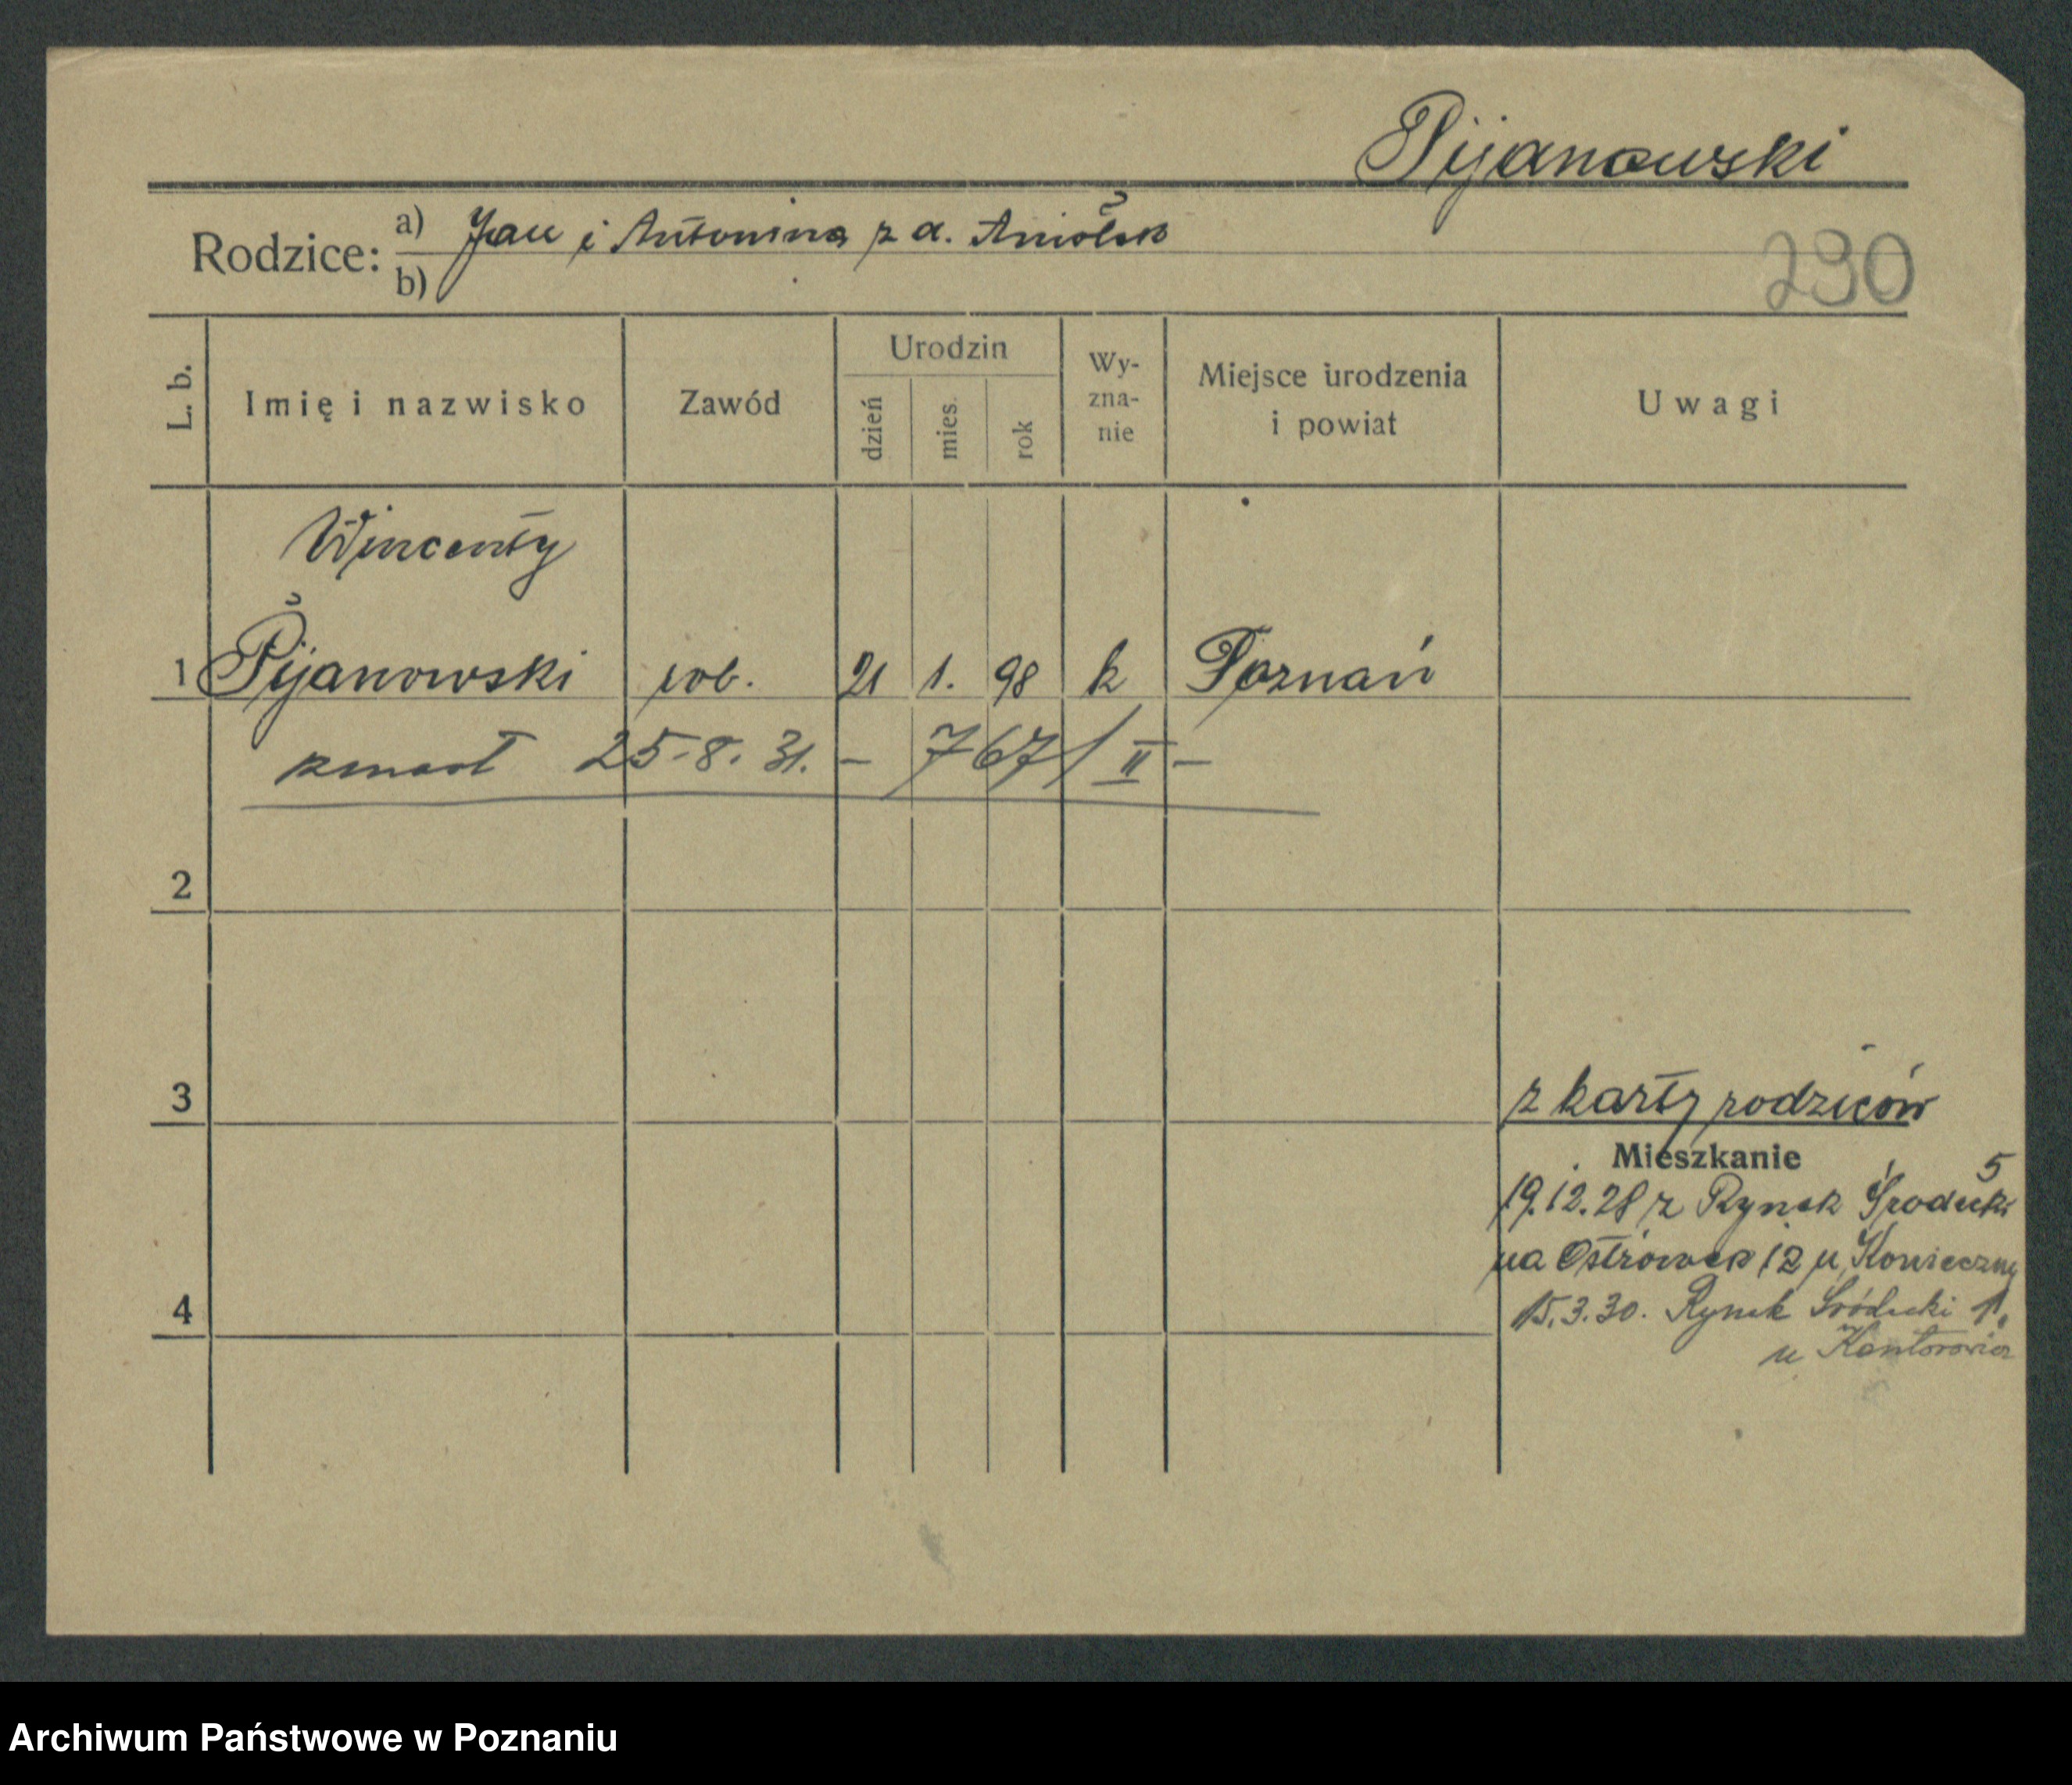 Pijanowski
Rodzice: a) Jan i Antonina z d. Aniołek
b)
290
L. b.
Imię i nazwisko
Zawód
Urodzin
dzień
mies.
rok
Wy-
zna-
nie
Miejsce urodzenia
i powiat
Uwagi
Wincenty
1 Pijanowski rob. 21 1. 98 k Poznań
zmarł 25-8. 31. - 767/II -
2
3
z karty rodziców
Mieszkanie
19.12.28 z Rynek Środecki 5
na Ostrówek 12 u Konieczny
4
15.3.30. Rynek Śródecki 1.
u Kantorowicz
Archiwum Państwowe w Poznaniu